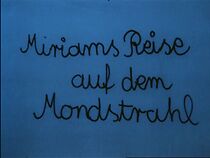 Miriams Reise
auf dem
Mondstrahl